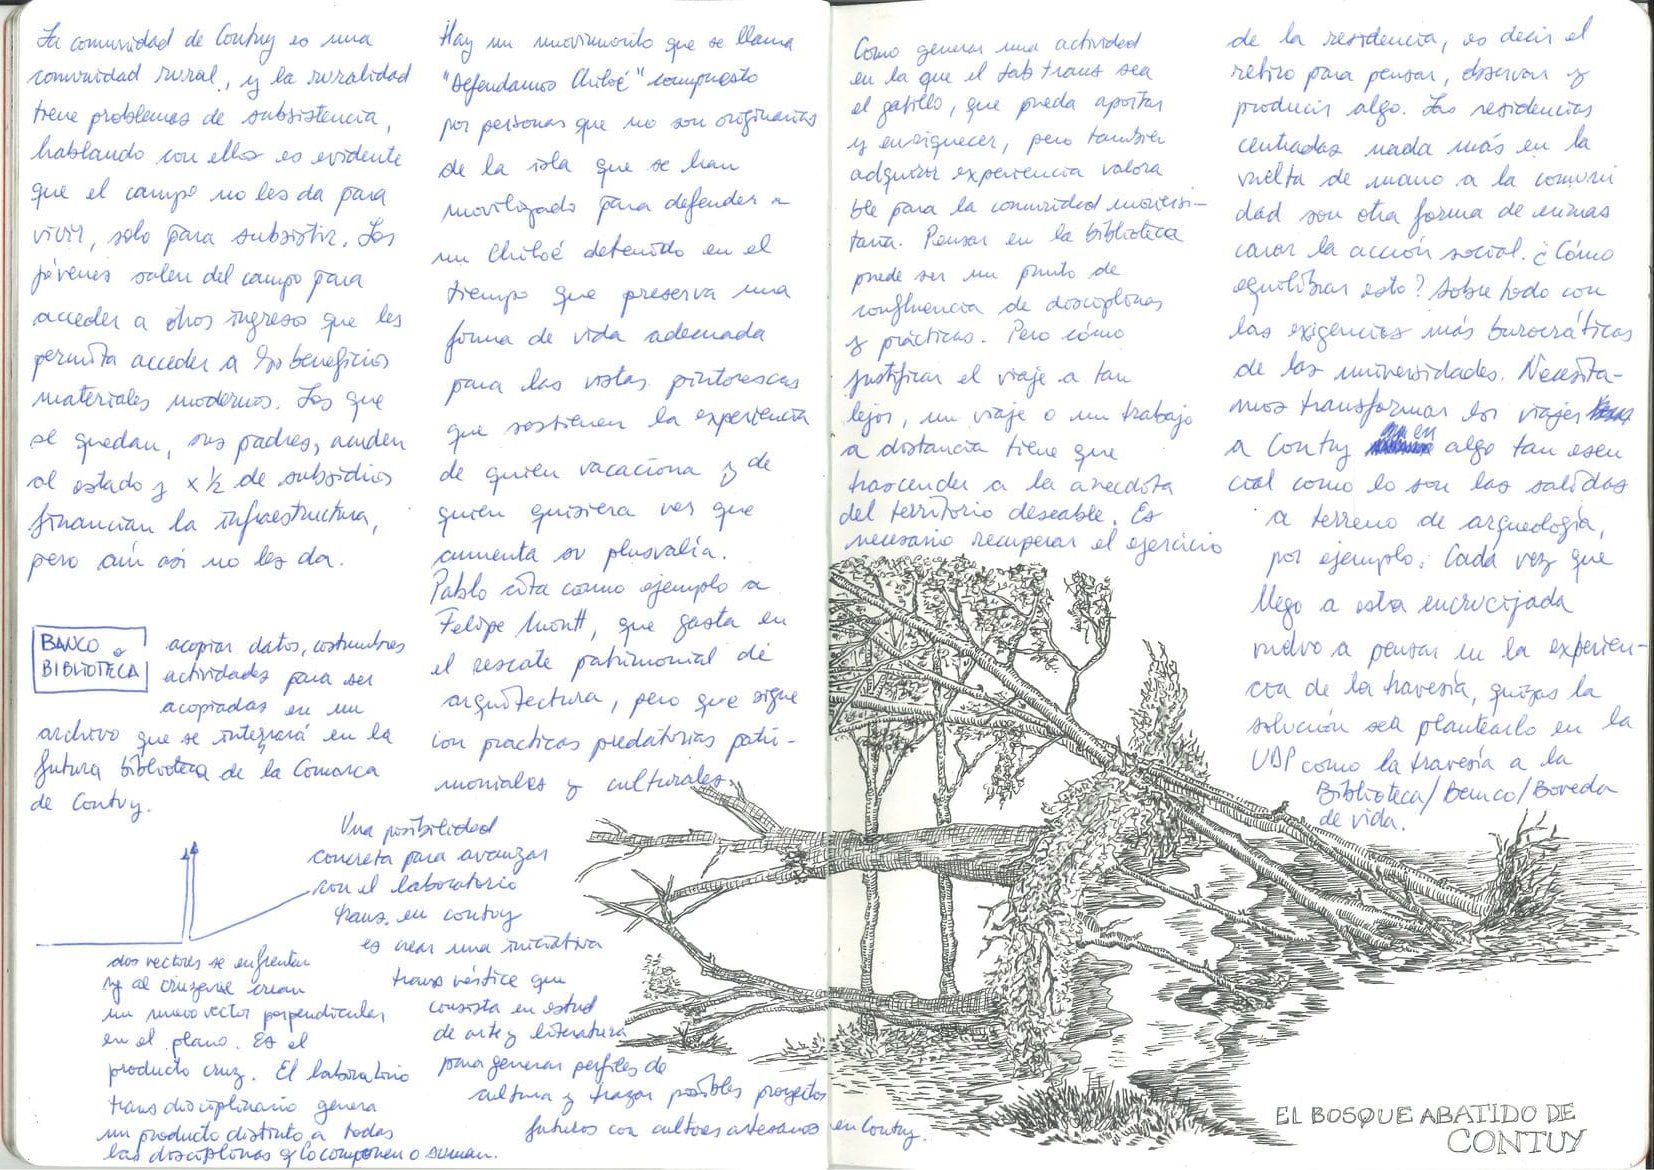 La comunidad de Contuy es una
comunidad rural, y la ruralidad
tiene problemas de subsistencia,
hablando con ellos es evidente
que el campo no les da para
vivir, solo para subsistir. Los
jóvenes salen del campo para
acceder a otros ingreso que les
permita acceder a los beneficios
materiales modernos. Los que
se quedan, sus padres, acuden
al estado y x 1/2 de subsidios
financian la infraestructura,
pero aún así no les da.
BANCO o
BIBLIOTECA
acopiar datos, costumbres
actividades para ser
acopiadas en un
archivo que se integrará en la
futura biblioteca de la Comarca
de Contuy.
dos vectores se enfrentan
y al cruzarse crean
un nuevo vector perpendicular
en el plano. Es el
producto cruz. El laboratorio
transdisciplinario genera
un producto distinto a todas
las disciplinas q lo componen o suman.
Una posibilidad
concreta para avanzar
con el laboratorio
trans. en contuy
es crear una iniciativa
trans vértice que
consista en estud
de arte y literatura
para generar perfiles de
cultura y trazar posibles proyectos
futuros con cultores artesanos en Contuy.
Hay un movimiento que se llama
"Defendamos Chiloé" compuesto
por personas que no son originarias
de la isla que se han
movilizado para defender a
un Chiloé detenido en el
tiempo que preserva una
forma de vida adecuada
para las vistas pintorescas
que sostienen la experiencia
de quien vacaciona y de
quien quisiera ver que
aumenta su plusvalía.
Pablo cita como ejemplo a
Felipe Montt, que gasta en
el rescate patrimonial de
arquitectura, pero que sigue
con practicas predatorias patri-
moniales y culturales.
Como generar una actividad
en la que el lab trans sea
el gatillo, que pueda aportar
y enriquecer, pero también
adquirir experiencia valora
ble para la comunidad universi-
taria. Pensar en la biblioteca
puede ser un punto de
confluencia de disciplinas
y prácticas. Pero cómo
justificar el viaje a tan
lejos, un viaje o un trabajo
a distancia tiene que
trascender a la anécdota
del territorio deseable. Es
necesario recuperar el ejercicio
de la residencia, es decir el
retiro para pensar, observar y
producir algo. Las residencias
centradas nada más en la
vuelta de mano a la comuni
dad son otra forma de enmas
carar la acción social. ¿Cómo
equilibrar esto? Sobre todo con
las exigencias más burocráticas
de las universidades. Necesita-
mos transformar los viajes
a Contuy en algo tan esen
cial como lo son las salidas
a terreno de arqueología,
por ejemplo. Cada vez que
llego a esta encrucijada
vuelvo a pensar en la experien-
cia de la travesía, quizas la
solución sea plantearlo en la
UDP como la travesía a la
Biblioteca/Banco/Boveda
de vida.
EL BOSQUE ABATIDO DE
CONTUY